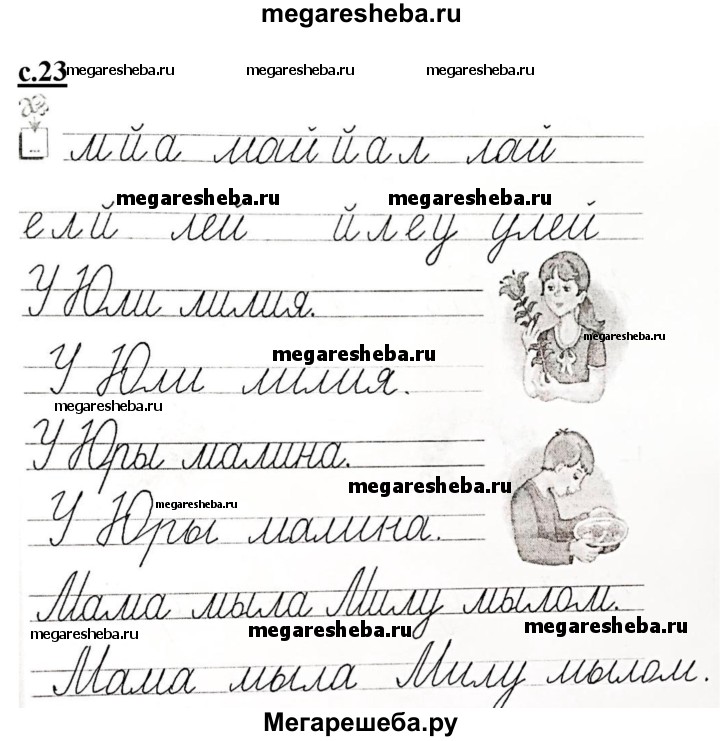 megaresheba.ru
с.23 megaresheba.ru megaresheba.ru megaresheba.ru
...
м й а май й а л лай
megaresheba.ru megaresheba.ru
е л й лей й л е у улей
У Юли лилия.
megaresheba.ru
megaresheba.ru
У Юли лилия.
megaresheba.ru
У Юры малина.
megaresheba.ru
megaresheba.ru
У Юры малина.
Мама мыла Милу мылом.
megaresheba.ru megaresheba.ru megaresheba.ru
Мама мыла Милу мылом.
Мегарешеба.ру